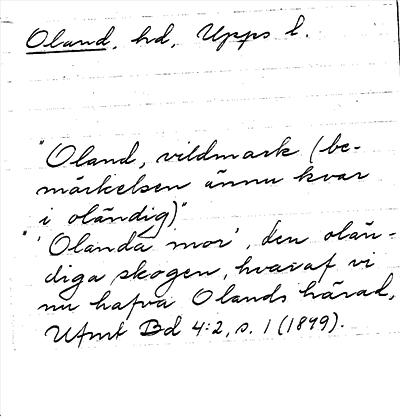 Oland, hd, Upps l.
"Oland, vildmark (be-
märkelsen ännu kvar
i oländig)"
"'Olanda mor', den olän-
diga skogen, hvaraf vi
nu hafva Olands härad,
Ufmt Bd 4:2, s. 1 (1899).